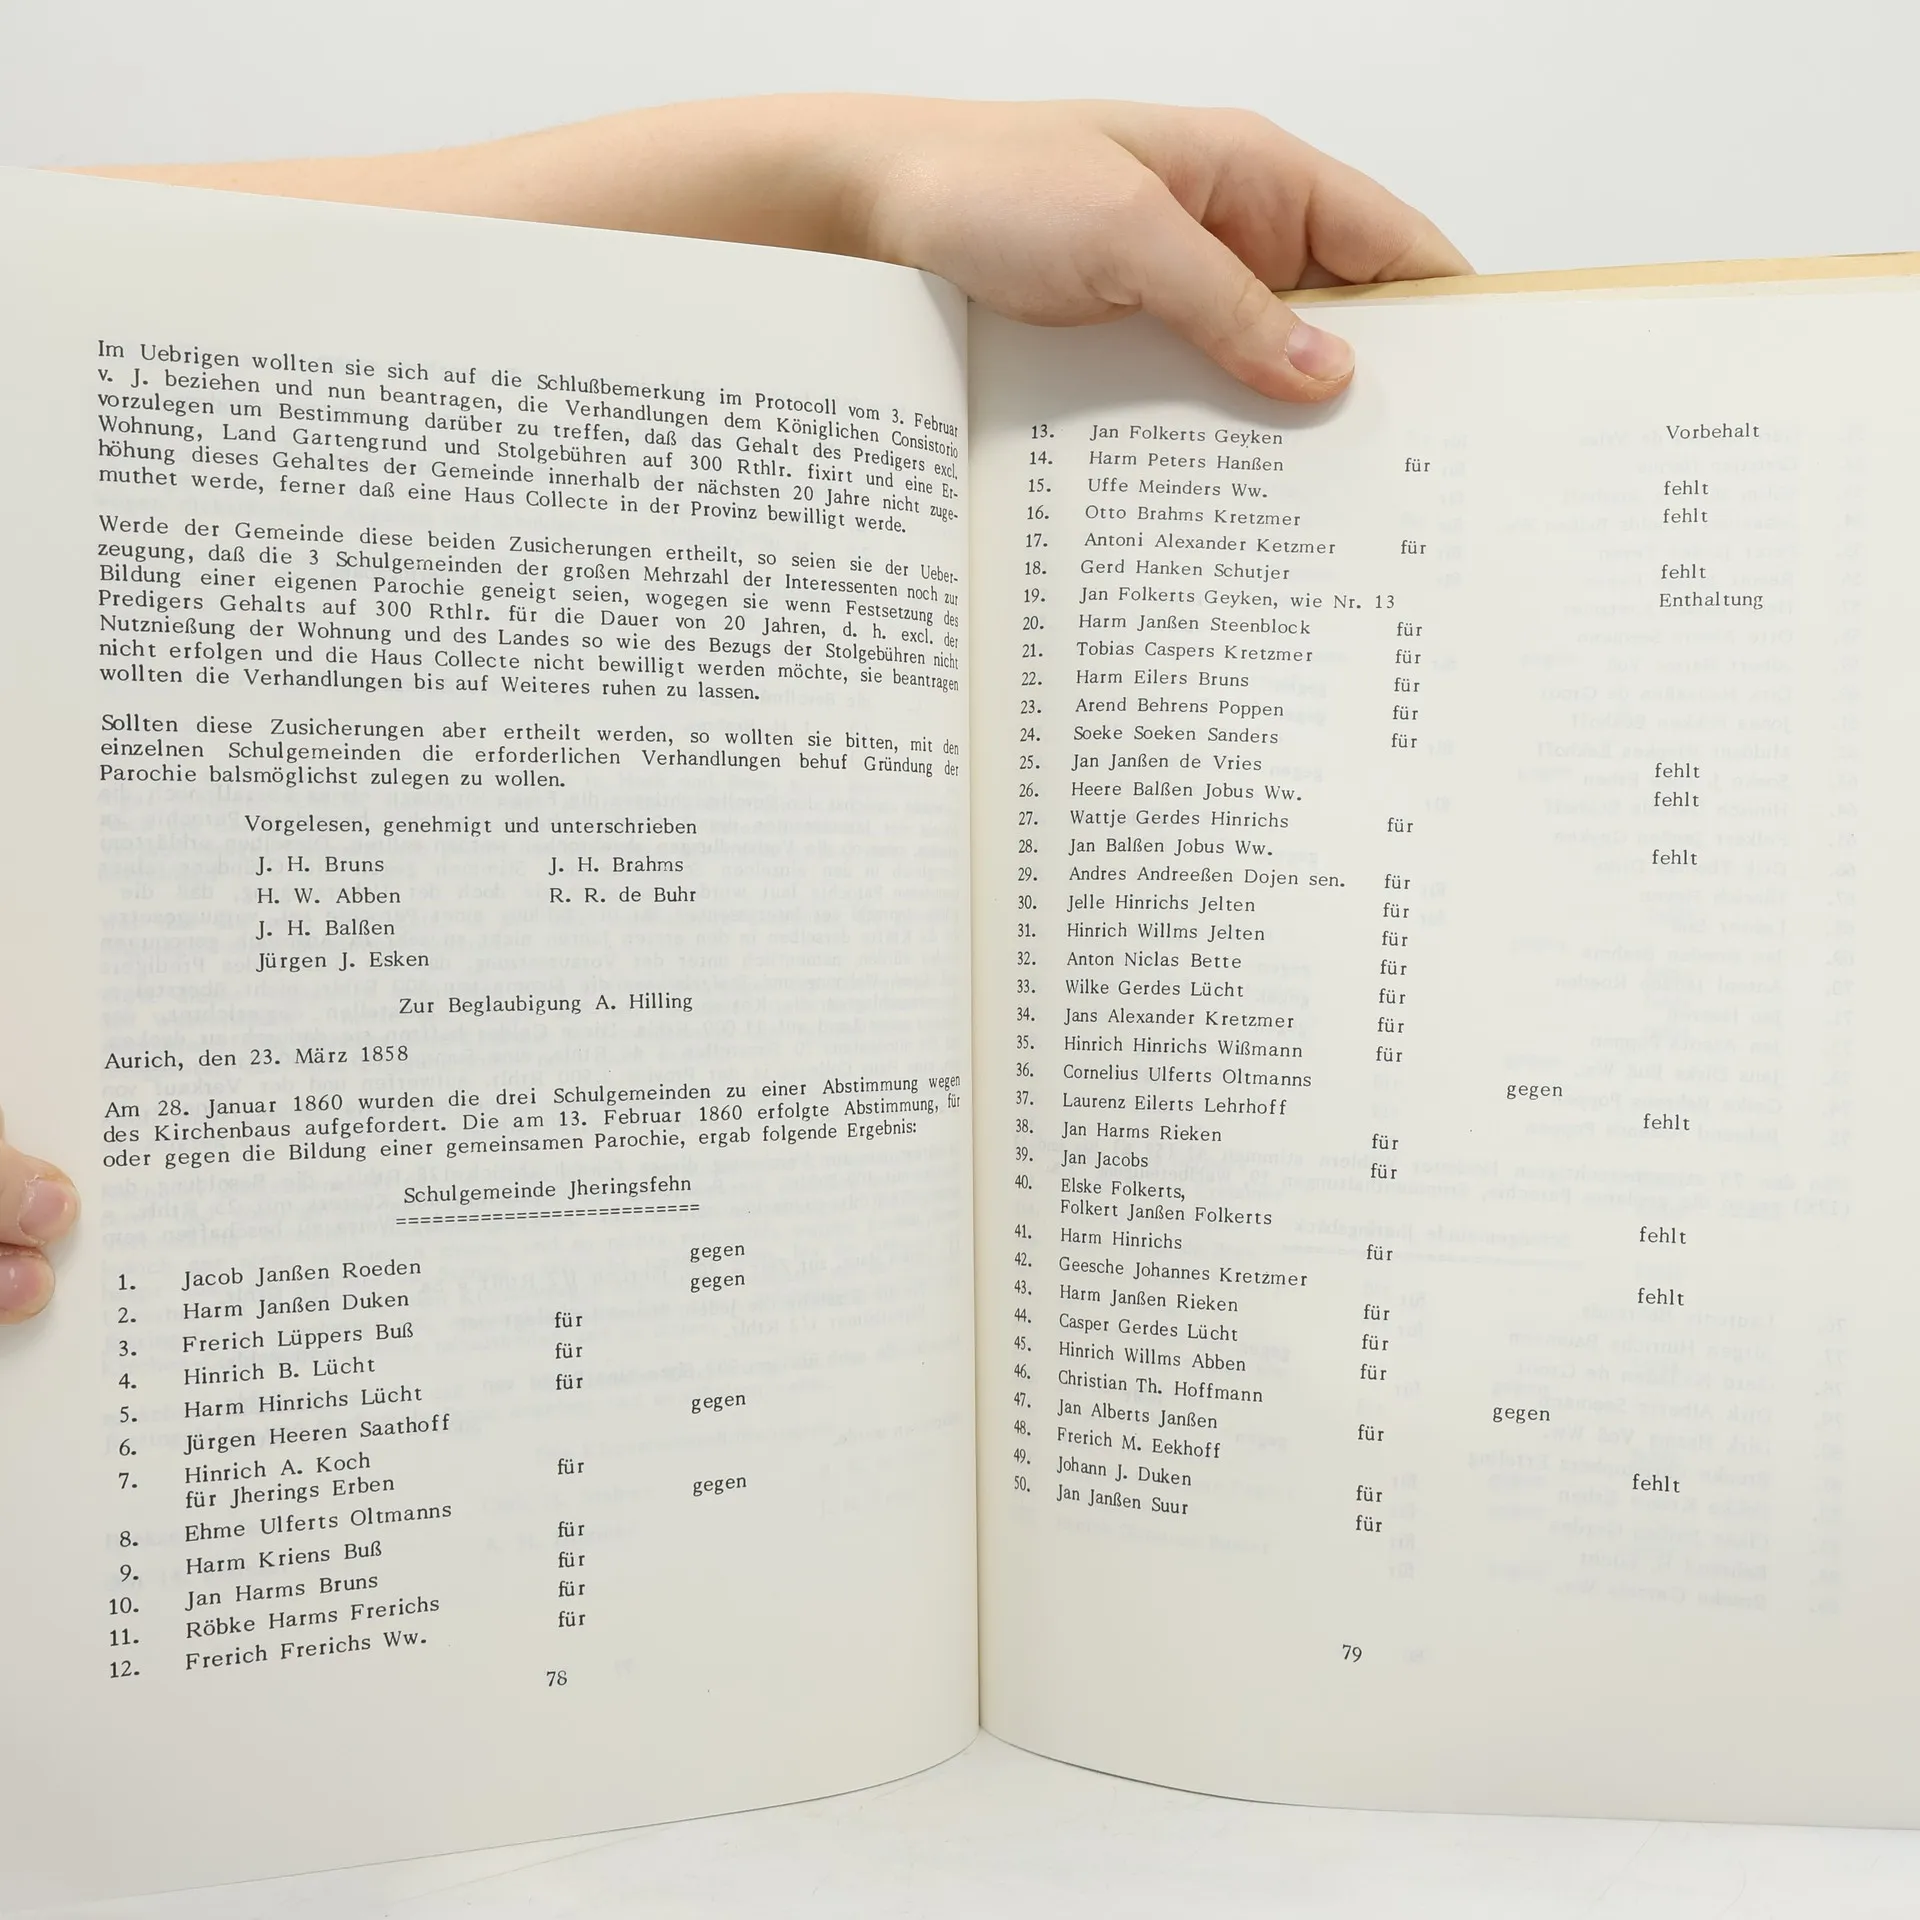 Im Uebrigen wollten sie sich auf die Schlußbemerkung im Protocoll vom 3. Februar
v. J. beziehen und nun beantragen, die Verhandlungen dem Königlichen Consistorio
vorzulegen um Bestimmung darüber zu treffen, daß das Gehalt des Predigers excl.
Wohnung, Land Gartengrund und Stolgebühren auf 300 Rthlr. fixirt und eine Er-
höhung dieses Gehaltes der Gemeinde innerhalb der nächsten 20 Jahre nicht zuge-
muthet werde, ferner daß eine Haus Collecte in der Provinz bewilligt werde.
Werde der Gemeinde diese beiden Zusicherungen ertheilt, so seien sie der Ueber-
zeugung, daß die 3 Schulgemeinden der großen Mehrzahl der Interessenten noch zur
Bildung einer eigenen Parochie geneigt seien, wogegen sie wenn Festsetzung des
Predigers Gehalts auf 300 Rthlr. für die Dauer von 20 Jahren, d. h. excl. der
Nutznießung der Wohnung und des Landes so wie des Bezugs der Stolgebühren nicht
nicht erfolgen und die Haus Collecte nicht bewilligt werden möchte, sie beantragen
wollten die Verhandlungen bis auf Weiteres ruhen zu lassen.
Sollten diese Zusicherungen aber ertheilt werden, so wollten sie bitten, mit den
einzelnen Schulgemeinden die erforderlichen Verhandlungen behuf Gründung der
Parochie balsmöglichst zulegen zu wollen.
Vorgelesen, genehmigt und unterschrieben
J. H. Bruns J. H. Brahms
H. W. Abben R. R. de Buhr
J. H. Balßen
Jürgen J. Esken
Zur Beglaubigung A. Hilling
Aurich, den 23. März 1858
Am 28. Januar 1860 wurden die drei Schulgemeinden zu einer Abstimmung wegen
des Kirchenbaus aufgefordert. Die am 13. Februar 1860 erfolgte Abstimmung, für
oder gegen die Bildung einer gemeinsamen Parochie, ergab folgende Ergebnis:
Schulgemeinde Jheringsfehn
=========================
1. Jacob Janßen Roeden gegen
2. Harm Janßen Duken gegen
3. Frerich Lüppers Buß für
4. Hinrich B. Lücht für
5. Harm Hinrichs Lücht für
6. Jürgen Heeren Saathoff gegen
7. Hinrich A. Koch
für Jherings Erben für
8. Ehme Ulferts Oltmanns gegen
9. Harm Kriens Buß für
10. Jan Harms Bruns für
11. Röbke Harms Frerichs für
12. Frerich Frerichs Ww. für
78
13. Jan Folkerts Geyken Vorbehalt
14. Harm Peters Hanßen für
15. Uffe Meinders Ww. fehlt
16. Otto Brahms Kretzmer fehlt
17. Antoni Alexander Ketzmer für
18. Gerd Hanken Schutjer fehlt
19. Jan Folkerts Geyken, wie Nr. 13 Enthaltung
20. Harm Janßen Steenblock für
21. Tobias Caspers Kretzmer für
22. Harm Eilers Bruns für
23. Arend Behrens Poppen für
24. Soeke Soeken Sanders für
25. Jan Janßen de Vries fehlt
26. Heere Balßen Jobus Ww. fehlt
27. Wattje Gerdes Hinrichs für
28. Jan Balßen Jobus Ww. fehlt
29. Andres Andreeßen Dojen sen. für
30. Jelle Hinrichs Jelten für
31. Hinrich Willms Jelten für
32. Anton Niclas Bette für
33. Wilke Gerdes Lücht für
34. Jans Alexander Kretzmer für
35. Hinrich Hinrichs Wißmann für
36. Cornelius Ulferts Oltmanns gegen
37. Laurenz Eilerts Lehrhoff fehlt
38. Jan Harms Rieken für
39. Jan Jacobs für
40. Elske Folkerts,
Folkert Janßen Folkerts fehlt
41. Harm Hinrichs für
42. Geesche Johannes Kretzmer fehlt
43. Harm Janßen Rieken für
44. Casper Gerdes Lücht für
45. Hinrich Willms Abben für
46. Christian Th. Hoffmann gegen
47. Jan Alberts Janßen für
48. Frerich M. Eekhoff fehlt
49. Johann J. Duken für
50. Jan Janßen Suur für
79